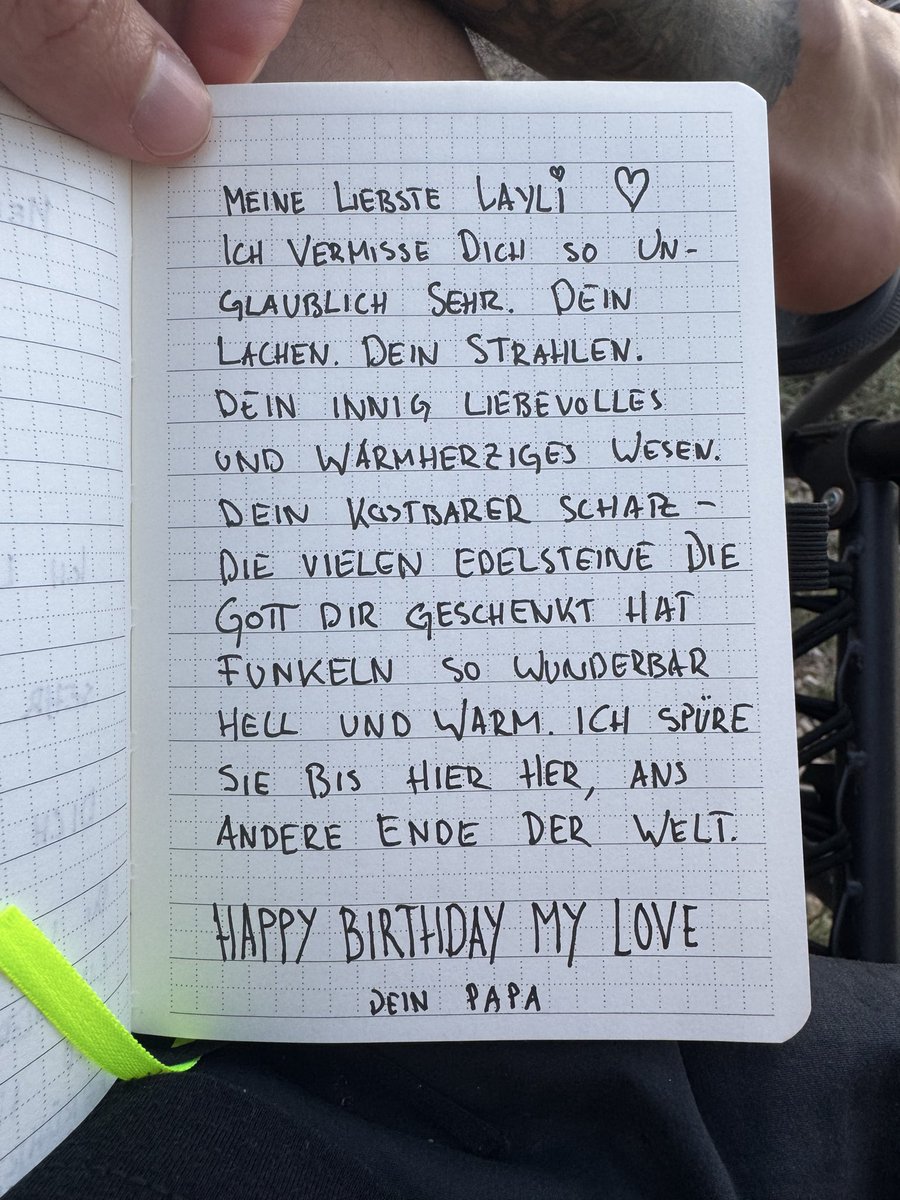 MEINE LIEBSTE LAYLi ♡
ICH VERMISSE DICH SO UN-
GLAUBLICH SEHR. DEIN
LACHEN. DEIN STRAHLEN.
DEIN INNIG LIEBEVOLLES
UND WARMHERZIGES WESEN.
DEIN KOSTBARER SCHATZ –
DIE VIELEN EDELSTEINE DIE
GOTT DIR GESCHENKT HAT
FUNKELN SO WUNDERBAR
HELL UND WARM. ICH SPÜRE
SIE BIS HIER HER, ANS
ANDERE ENDE DER WELT.
HAPPY BIRTHDAY MY LOVE
DEIN PAPA